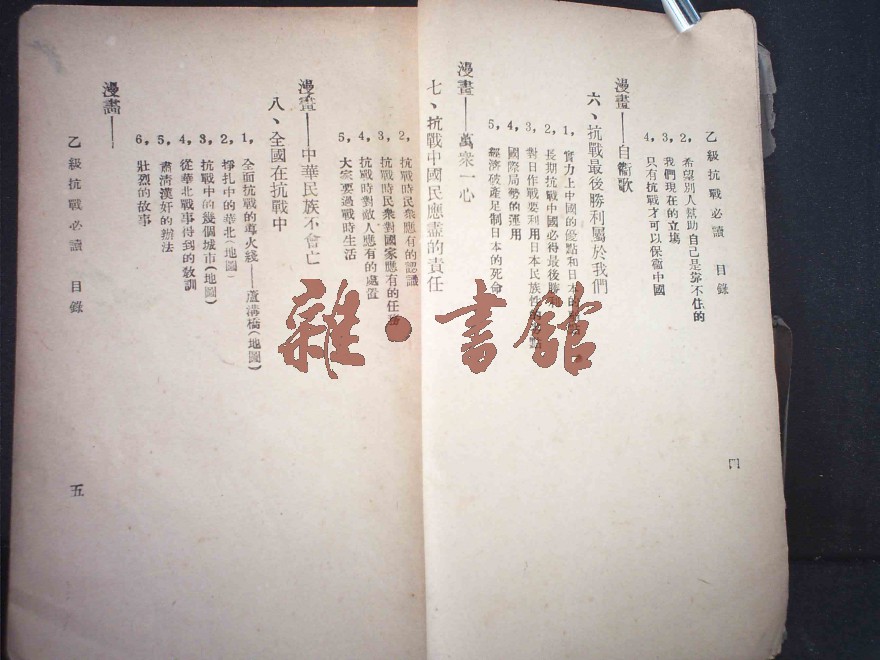 乙級抗戰必讀　目錄
2，希望別人幫助自己是靠不住的
3，我們現在的立場
4，只有抗戰才可以保蘊中國
漫畫——自衞歌
六、抗戰最後勝利屬於我們
1，實力上中國的優點和日本的
2，長期抗戰中國必得最後勝
3，對日作戰要利用日本民族性的
4，國際局勢的運用
5，經濟破產足制日本的死命
漫畫——萬衆一心
七、抗戰中國民應盡的責任
四
2，抗戰時民衆應有的認識
3，抗戰時民衆對國家應有的任務
4，抗戰時對敵人應有的處置
5，大家要過戰時生活
漫畫——中華民族不會亡
八、全國在抗戰中
1，全面抗戰的導火綫——蘆溝橋（地圖）
2，掙扎中的華北（地圖）
3，抗戰中的幾個城市（地圖）
4，從華北戰事得到的敎訓
5，肅清漢奸的辦法
6，壯烈的故事
漫畫——
乙級抗戰必讀　目錄
五
雜·書館